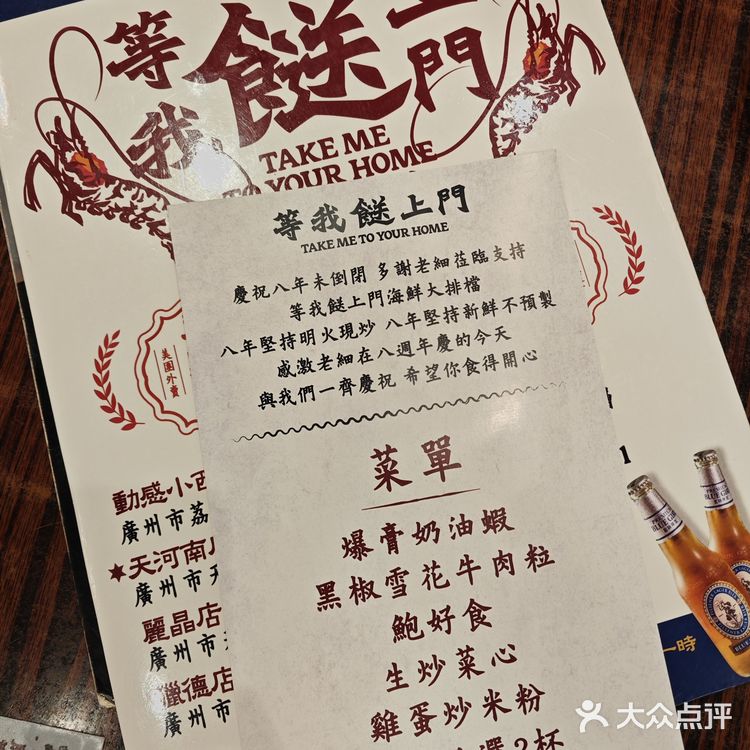 等我餸上門
TAKE ME
TO YOUR HOME
等我餸上門
TAKE ME TO YOUR HOME
慶祝八年未倒閉 多謝老細蒞臨支持
等我餸上門海鮮大排檔
八年堅持明火現炒 八年堅持新鮮不預製
感激老細在八週年慶的今天
與我們一齊慶祝 希望你食得開心
菜單
爆膏奶油蝦
黑椒雪花牛肉粒
鮑好食
生炒菜心
雞蛋炒米粉
選2杯
美團外賣
動感小西
廣州市荔
★天河南店
廣州市天
麗晶店
廣州市
獵德店
廣州市
1
一時
大众点评